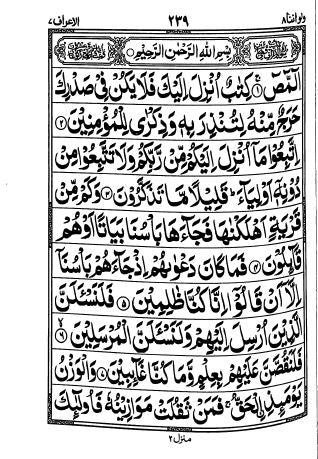 ولواننا ٨ ٢٣٩ الاعراف ٧
بِسْمِ اللّٰهِ الرَّحْمٰنِ الرَّحِيْمِ
الٓمّٓصٓ ۝١ كِتٰبٌ اُنْزِلَ اِلَيْكَ فَلَا يَكُنْ فِيْ صَدْرِكَ
حَرَجٌ مِّنْهُ لِتُنْذِرَ بِهٖ وَذِكْرٰى لِلْمُؤْمِنِيْنَ ۝٢
اِتَّبِعُوْا مَاۤ اُنْزِلَ اِلَيْكُمْ مِّنْ رَّبِّكُمْ وَلَا تَتَّبِعُوْا مِنْ
دُوْنِهٖۤ اَوْلِيَآءَ ؕ قَلِيْلًا مَّا تَذَكَّرُوْنَ ۝٣ وَكَمْ مِّنْ
قَرْيَةٍ اَهْلَكْنٰهَا فَجَآءَهَا بَاْسُنَا بَيَاتًا اَوْ هُمْ
قَآئِلُوْنَ ۝٤ فَمَا كَانَ دَعْوٰىهُمْ اِذْ جَآءَهُمْ بَاْسُنَاۤ
اِلَّاۤ اَنْ قَالُوْۤا اِنَّا كُنَّا ظٰلِمِيْنَ ۝٥ فَلَنَسْـَٔلَنَّ
الَّذِيْنَ اُرْسِلَ اِلَيْهِمْ وَلَنَسْـَٔلَنَّ الْمُرْسَلِيْنَ ۝٦
فَلَنَقُصَّنَّ عَلَيْهِمْ بِعِلْمٍ وَّمَا كُنَّا غَآئِبِيْنَ ۝٧ وَالْوَزْنُ
يَوْمَئِذِ ِۨالْحَقُّ ۚ فَمَنْ ثَقُلَتْ مَوَازِيْنُهٗ فَاُولٰٓئِكَ
منزل ٢